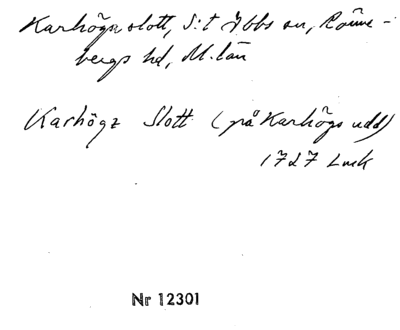 Karhögs slott, S:t Ibbs sn, Rönne-
bergs hd, M.län
Karhögz Slott (på Karhögs udd)
1727 Luk
Nr 12301